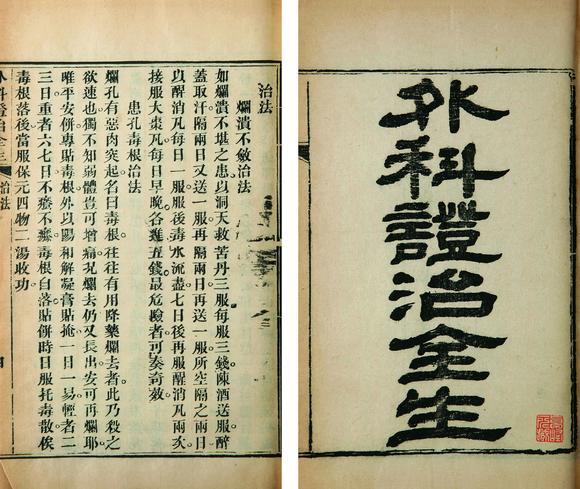 外科證治全生
治法
爛潰不斂治法
如爛潰不堪之患。以洞天救苦丹三服每服三錢。陳酒送服。醉
蓋取汗。隔兩日又送一服。再隔兩日再送一服。所空隔之兩日
以醒消丸每日一服。服後毒水流盡。七日後再服醒消丸兩次
接服大棗丸。每日早晚各進五錢。最危險者。可奏奇效
患孔毒根治法
爛孔有惡肉突起。名曰毒根。往往有用降藥爛去者。此乃殺之
欲速也。獨不知弱體豈可增痛。況爛去仍又長出。安可再爛耶
唯平安餅專貼毒根外以陽和解凝膏貼掩。一日一易。輕者二
三日。重者六七日。不不毒根自落。貼餅時日服托毒散。俟
毒根落後。當服保元四物二湯收功。
治法